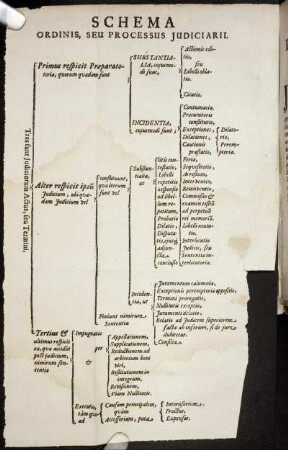 SCHEMA
ORDINIS, SEU PROCESSUS JUDICIARII.
Trium Judiciorum Actus, seu Termini.
Primus respicit Preparatoria, quorum quædam sunt
SUBSTANTIALIA, cujusmodi sunt,
Actionis editio,
seu
Libelli oblatio.
Citatio.
INCIDENTIA, cujusmodi sunt
Contumacia.
Procuratoris constitutio,
Exceptiones,
Dilationes,
Cautionis præstatio,
Dilatoriæ,
Peremptoriæ.
Alter respicit ipsũ Judicium, ad quædam Judicium vel
constituunt, qua iterum sunt vel
Substantialia, ut
Litis contestatio,
Libelli repetitio,
Actoris responsio ad libellum repetitum,
Probatio
Dilatio,
Disputatio, quæq;
conclusio
Feriæ,
Sequestratio,
Arrestum,
Interventio,
Reconventio,
Commissio de examinandis testibus ad perpetuã rei memoriã.
Libelli mutatio
Interlocutio
Judicis, seu
Sententia interlocutoria.
Incidentia, ut
Juramentum calumniæ,
Exceptionis peremptoriæ oppositio,
Termini prorogatio,
Nullitatis exceptio,
Juramenti delatio,
Relatio ad Judicem superiorem facta ab inferiori, si de jure dubitetur.
Consilia.
Finiunt nimirum Sententia
Tertius & ultimus respicit ea, quæ accidũt post judicium, nimirum sententia
Impugnatio per
Appellationem,
Supplicationem,
Reductionem ad arbitrium boni viri,
Restitutionem in integrum,
Revisionem,
Viam Nullitatis.
Executio, tàm quoad
Causam principalem, quàm
Accessorium, puta
Interusurium.
Fructus.
Expensas.